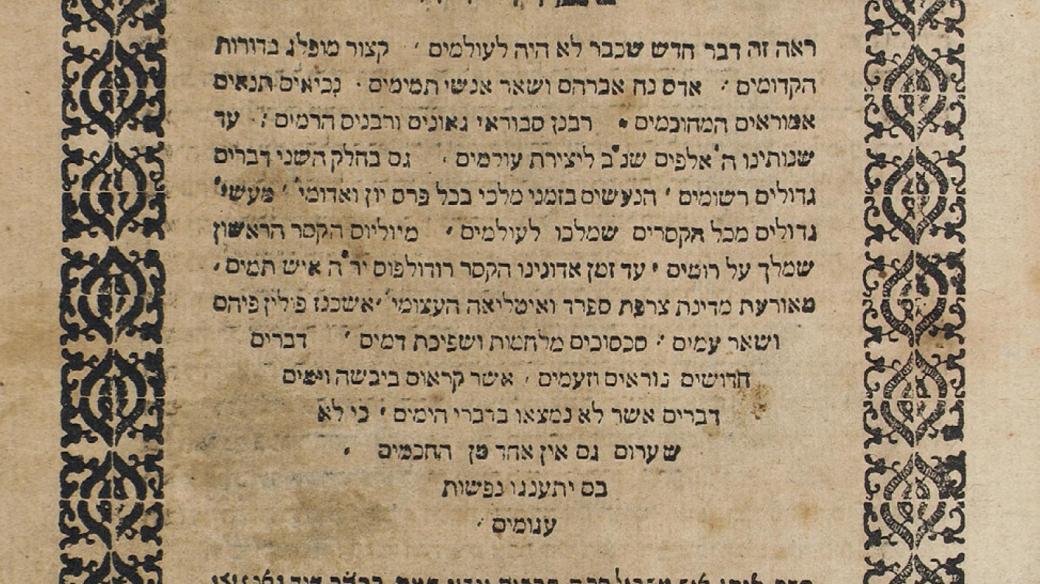 ראה זה דבר חדש שכבר לא היה לעולמים ׳ קצור מופלג בדורות
הקדומים ׳ אדם נח אברהם ושאר אנשי תמימים ׳ נביאים תנאים
אמוראים המחוכמים • רבנן סבוראי גאונים ורבנים הרמים ׃ עד
שנותינו ה״אלפים שנ״ב ליצירת עולמים ׳ גם בחלק השני דברים
גדולים רשומים ׳ הנעשים בזמני מלכי בבל פרס יון ואדומי׳ ׳ מעשי׳
גדולים מכל הקסרים שמלכו לעולמים ׳ מיוליוס הקסר הראשון
שמלך על רומים ׳ עד זמן אדונינו הקסר רודולפוס יר״ה איש תמים ׳
מאורעת מדינת צרפת ספרד ואיטליאה העצומי׳ ׳ אשכנז פולין פיהם
ושאר עמים ׃ סכסוכים מלחמות ושפיכת דמים ׳ דברים
חדושים נוראים וזעמים ׳ אשר קראום ביבשה וימים
דברים אשר לא נמצאו בדברי הימים ׳ כי לא
שערום גם אין אחד מן החכמים •
בם יתענגו נפשות
ענומים ׳